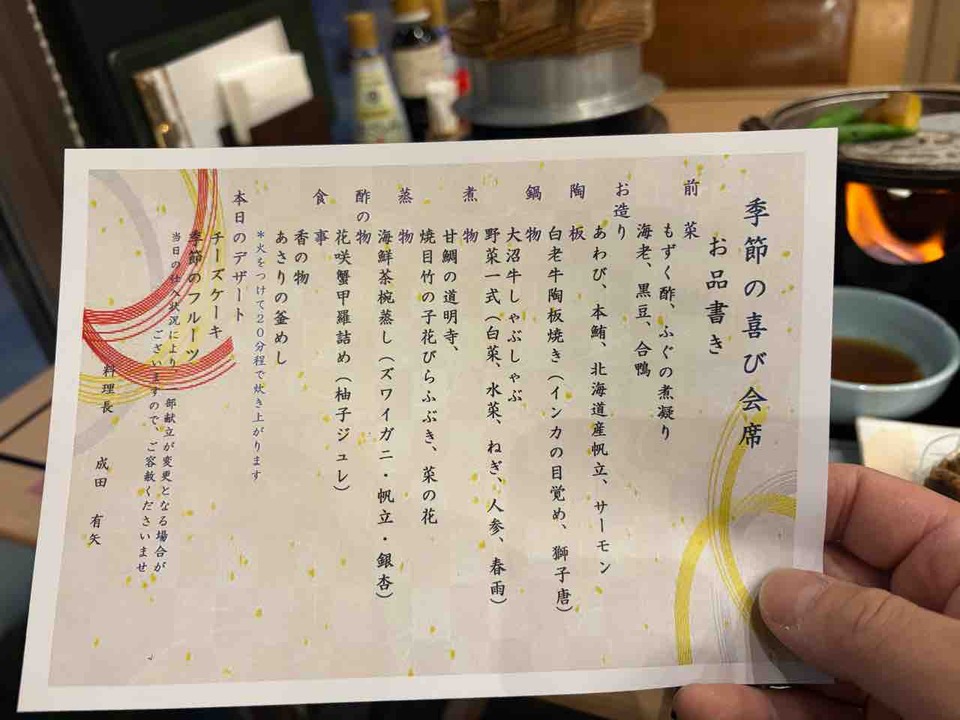 季節の喜び会席
お品書き
前菜
もずく酢、ふぐの煮凝り
海老、黒豆、合鴨
お造り
あわび、本鮪、北海道産帆立、サーモン
陶板
白老牛陶板焼き（インカの目覚め、獅子唐）
鍋物
大沼牛しゃぶしゃぶ
野菜一式（白菜、水菜、ねぎ、人参、春雨）
煮物
甘鯛の道明寺、
焼目竹の子花びらふぶき、菜の花
蒸物
海鮮茶椀蒸し（ズワイガニ・帆立・銀杏）
酢の物
花咲蟹甲羅詰め（柚子ジュレ）
食事
香の物
あさりの釜めし
＊火をつけて２０分程で炊き上がります
本日のデザート
チーズケーキ
季節のフルーツ
当日の仕入状況により一部献立が変更となる場合が
ございますので、ご容赦くださいませ
料理長 成田 有矢